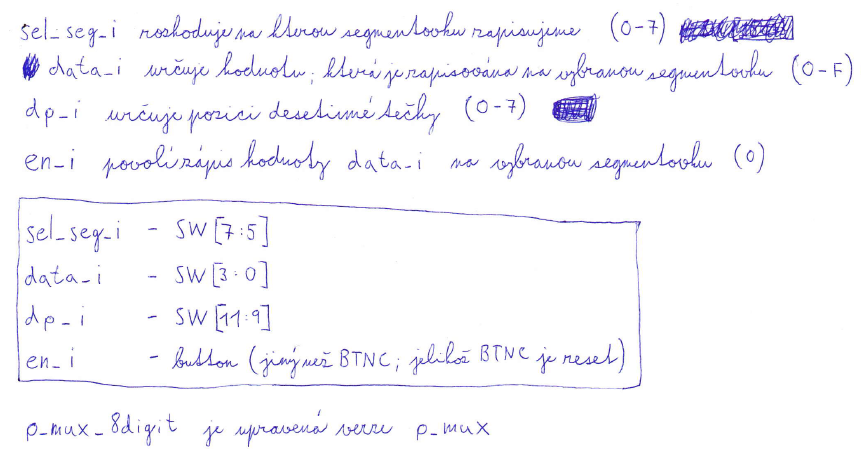 sel_seg_i rozhoduje na kterou segmentovku zapisujeme (0-7)
data_i určuje hodnotu, která je zapisována na vybranou segmentovku (0-F)
dp_i určuje pozici desetinné tečky (0-7)
en_i povolí zápis hodnoty data_i na vybranou segmentovku (0)
sel_seg_i - SW[7:5]
data_i - SW[3:0]
dp_i - SW[11:9]
en_i - button (jiný než BTNC, jelikož BTNC je reset)
p_mux_8digit je upravená verze p_mux